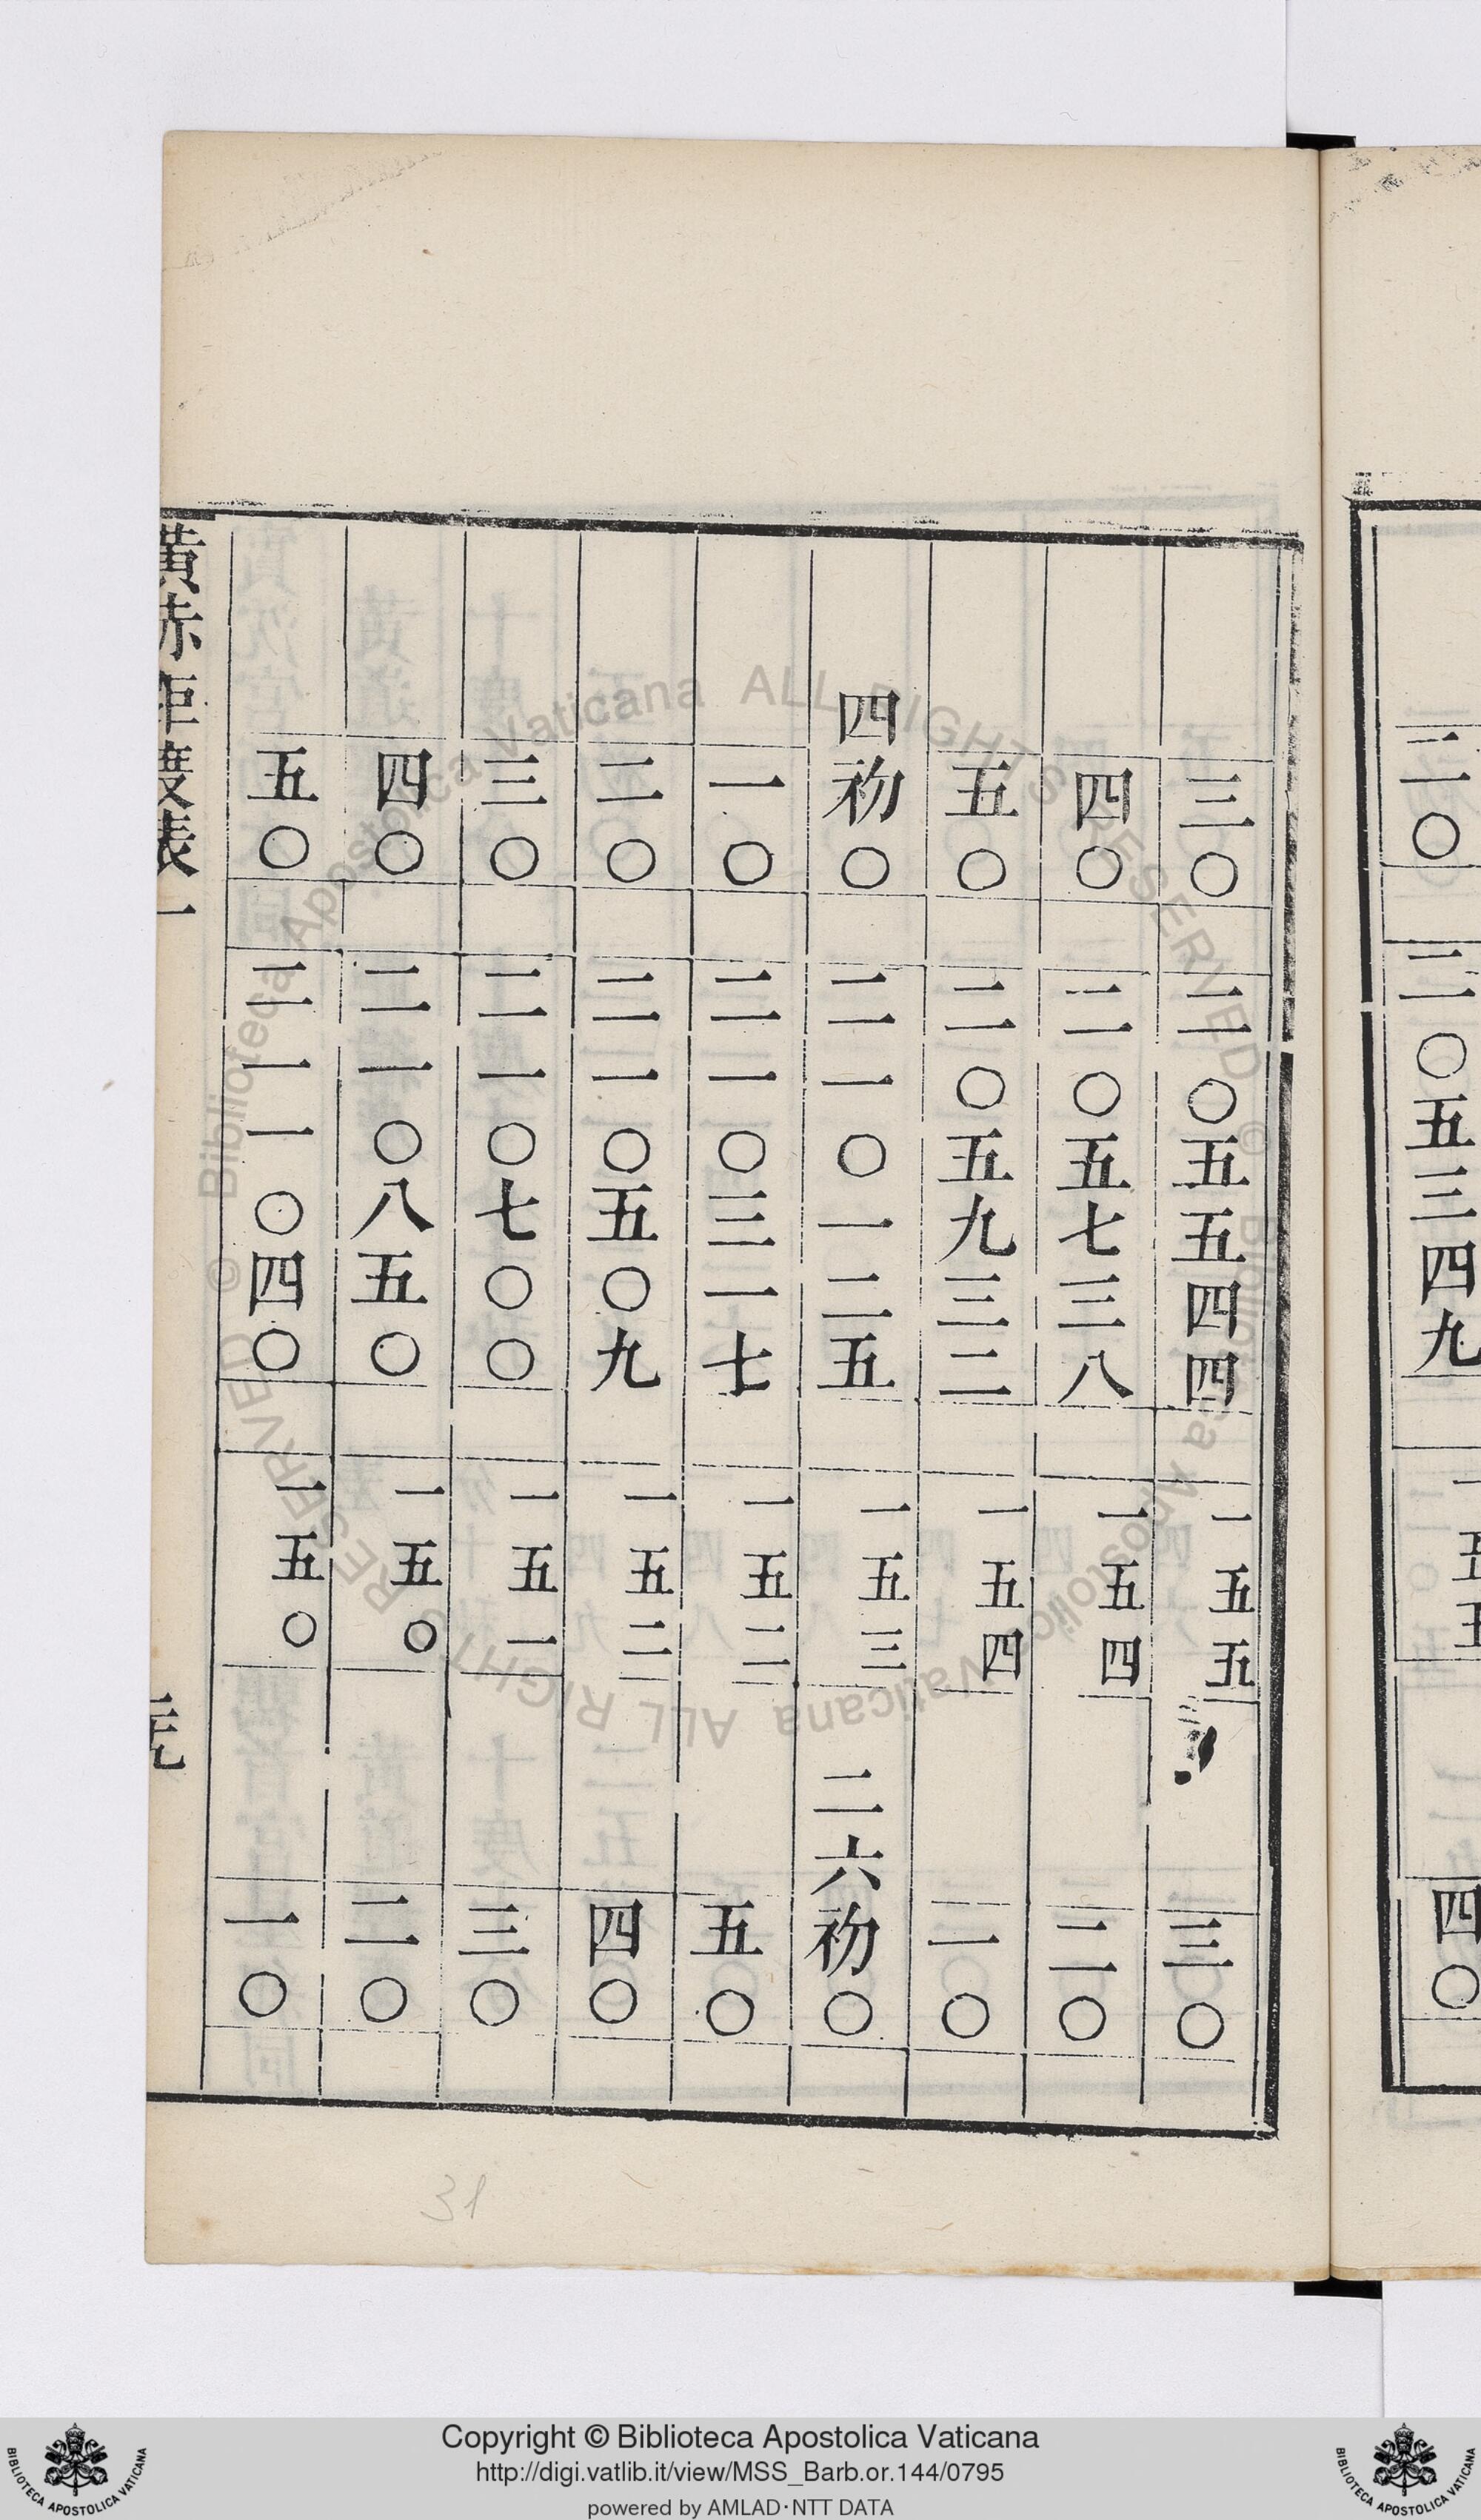 二〇 二〇五三四九 一五五 四〇
三〇 二〇五五四四 一五五 三〇
四〇 二〇五七三八 一五四 二〇
五〇 二〇五九三二 一五四 一〇
四初〇 二一〇一二五 一五三 二六初〇
一〇 二一〇三一七 一五二 五〇
二〇 二一〇五〇九 一五二 四〇
三〇 二一〇七〇〇 一五一 三〇
四〇 二一〇八五〇 一五〇 二〇
五〇 二一一〇四〇 一五〇 一〇
黃赤距度表一
31
© Biblioteca Apostolica Vaticana ALL RIGHTS RESERVED
© Biblioteca Apostolica Vaticana ALL RIGHTS RESERVED
Copyright © Biblioteca Apostolica Vaticana
http://digi.vatlib.it/view/MSS_Barb.or.144/0795
powered by AMLAD·NTT DATA
BIBLIOTECA APOSTOLICA VATICANA
BIBLIOTECA APOSTOLICA VATICANA